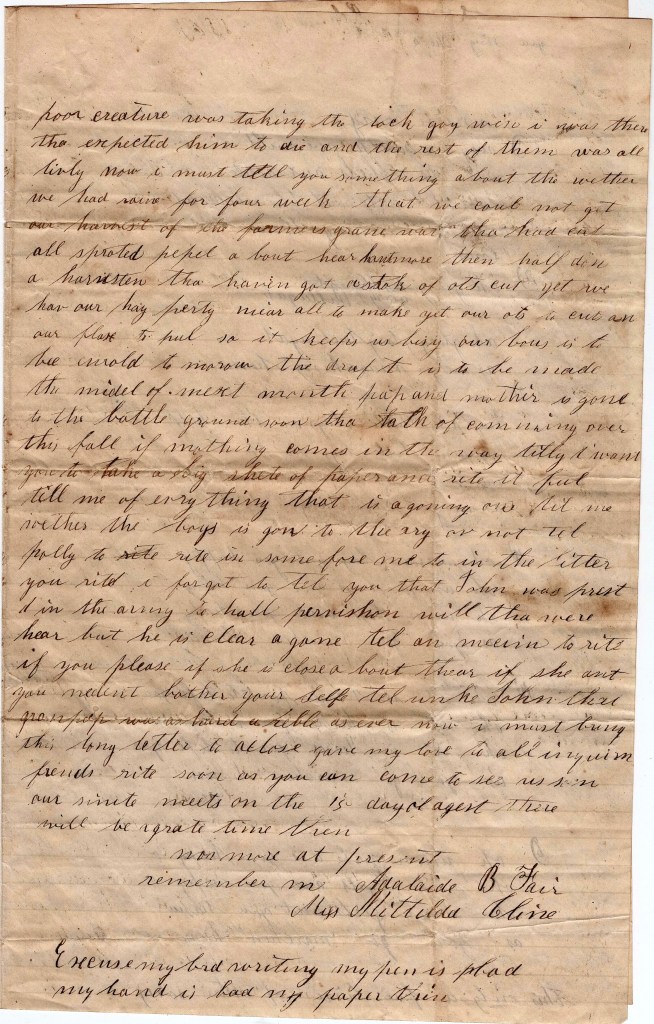 poor creature was taking the lock gay wise i was there
tha expected him to die and the rest of them was all
lively now i must tell you something about the wether
we had rain for four week that we coul not get
our harvest of the farmers grane was tha had cut
all sproted pepel a bout hear hant more then half don
a harvsten tha haven got a stok of ots cut yet we
hav our hay perty near all to make yet our ots to cut an
our flax to pul so it keeps us besy our bous is to
bee enrold to morow the draft is to be made
the midel of next month pap and mother is gone
to the battle ground soon tha talk of comming over
this fall if nothing comes in the way tilly i want
you to take a big shete of paper and rite it ful
till me of evrything that is agoning on tel me
wether the boys is gon to the ary or not tel
polly to rite rite in some fore me to in the letter
you rite i forgot to tel you that John was prest
d in the army to hall pervishon will tha were
hear but he is clear agane tel an to rite
if you please if she is close a bout thear if she ant
you nedent bother your self tel unke John that
granpap was as hard as ever now i must bring
this long letter to a close gave my love to all inquirin
frends rite soon as you can come to see us soon
our sinete meets on the 15 day of agest there
will be agrate time then
no more at present
remember me Adalaide B Fair
Miss Mittilda Cline
Excuse my bad writing my pen is bad
my hand is bad my paper thin